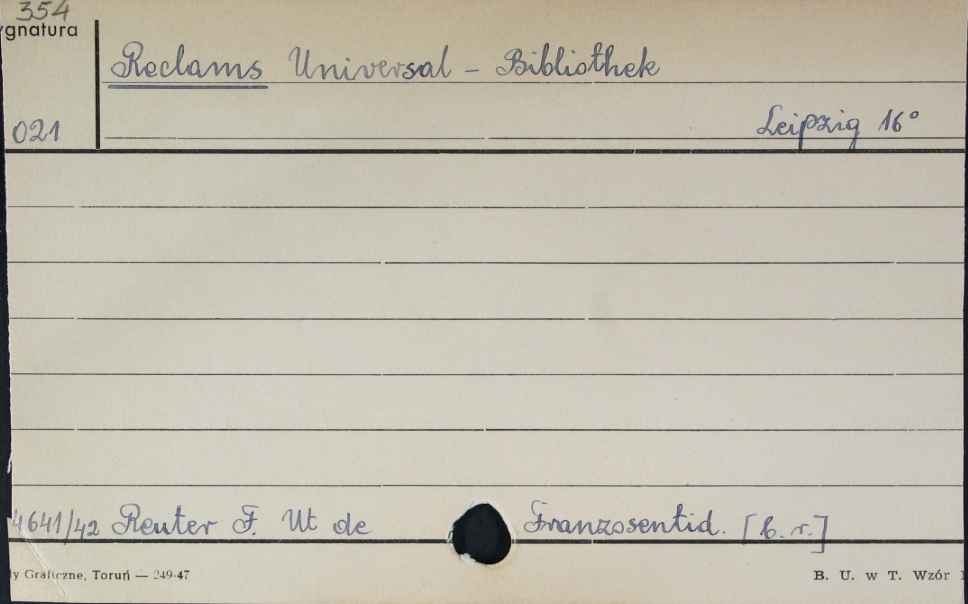 354
ygnatura
Reclams Universal - Bibliothek
021
Leipzig 16°
4641/42 Reuter F. Ut de Franzosentid. [b. r.]
y Graficzne, Toruń — 249-47
B. U. w T. Wzór